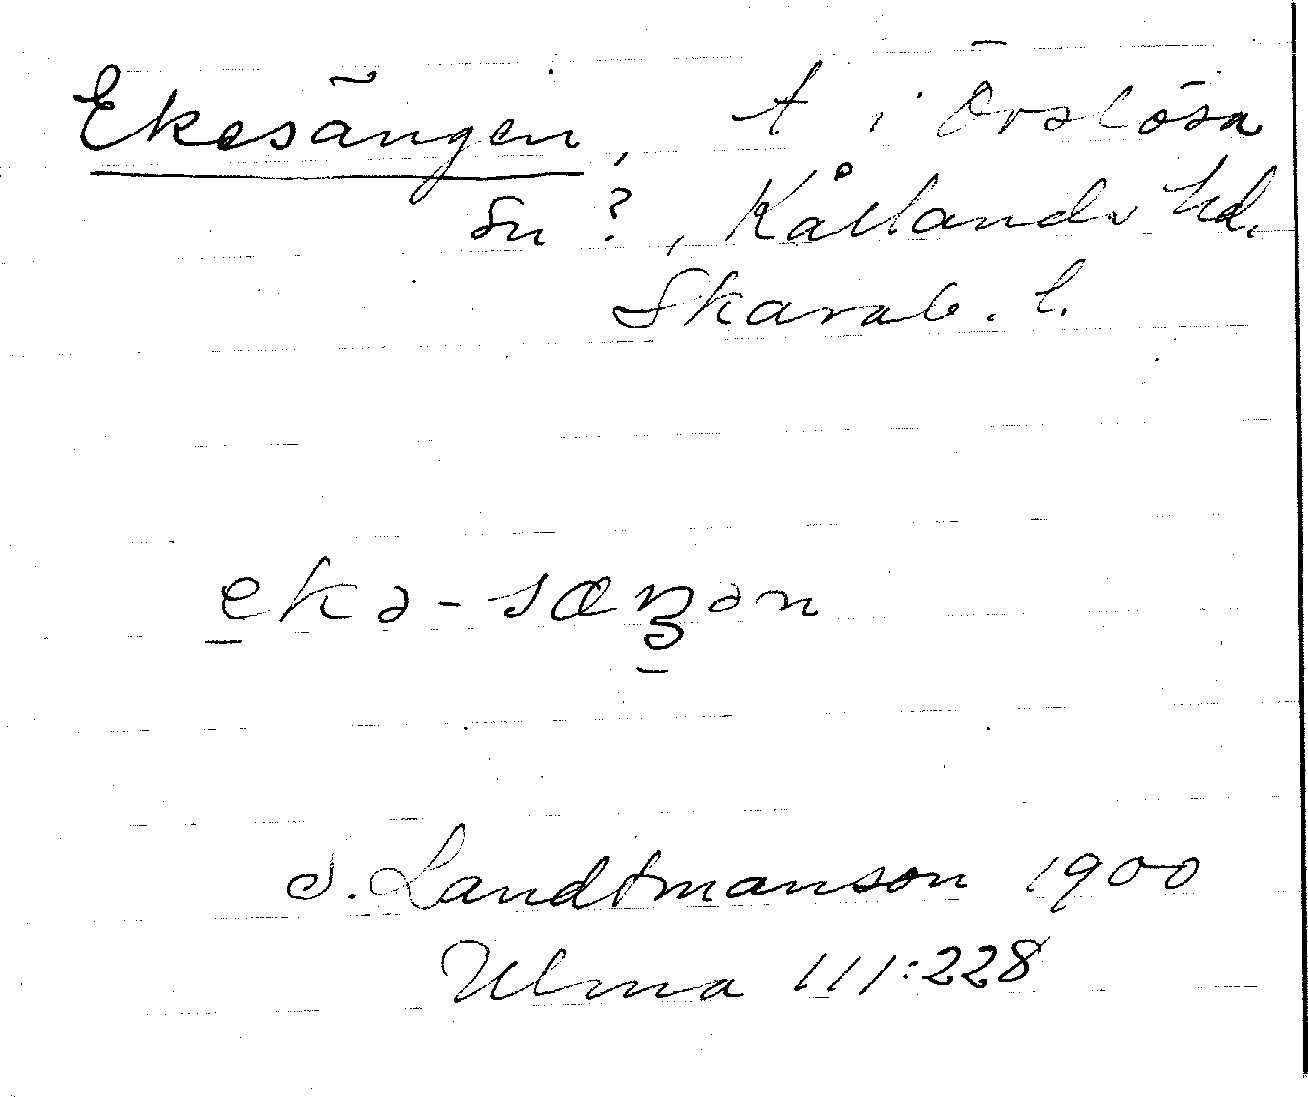 Ekesängen, t i Örslösa
sn ?, Kållands hd.
Skarab. l.
eka-sæŋən
S. Landtmanson 1900
Ulma 111:228